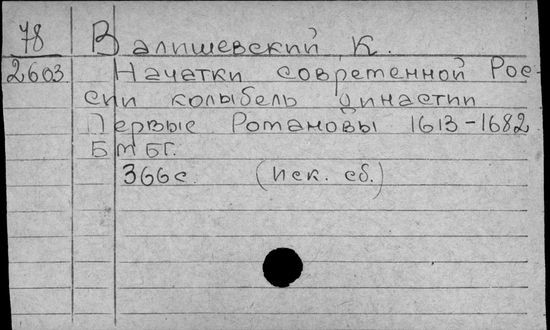 78 Валишевский К.
2603 Начатки современной Рос-
сии колыбель династии
Первые Романовы 1613-1682
Б м Б г.
366 с. (Иск. сб.)